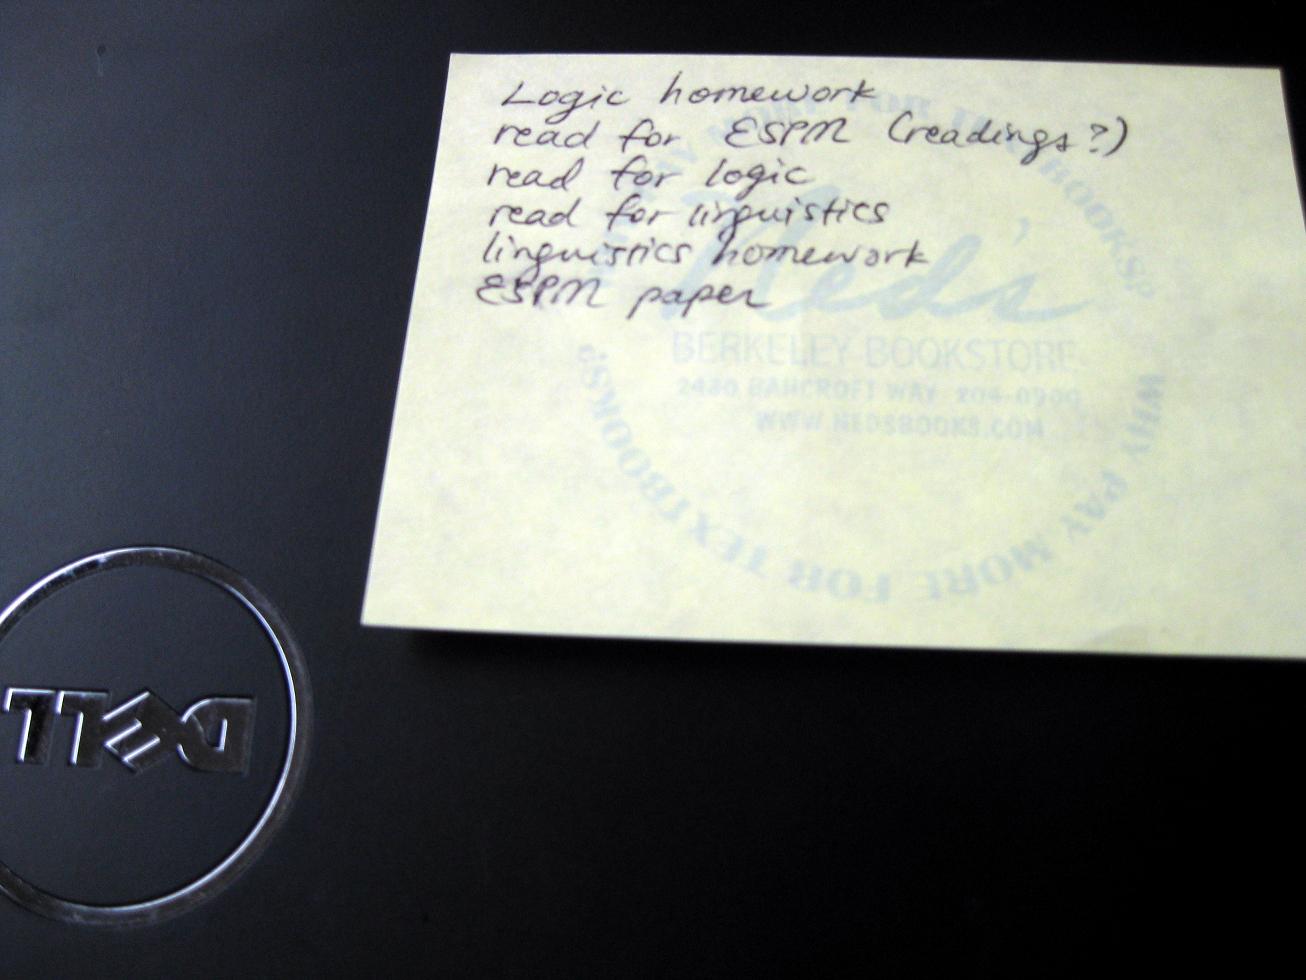 Logic homework
read for ESPM (readings?)
read for logic
read for linguistics
linguistics homework
ESPM paper
Ned's
BERKELEY BOOKSTORE
2480 BANCROFT WAY 204-0900
WWW.NEDSBOOKS.COM
WHY PAY MORE FOR TEXTBOOKS?
WHY PAY MORE FOR TEXTBOOKS?
DELL